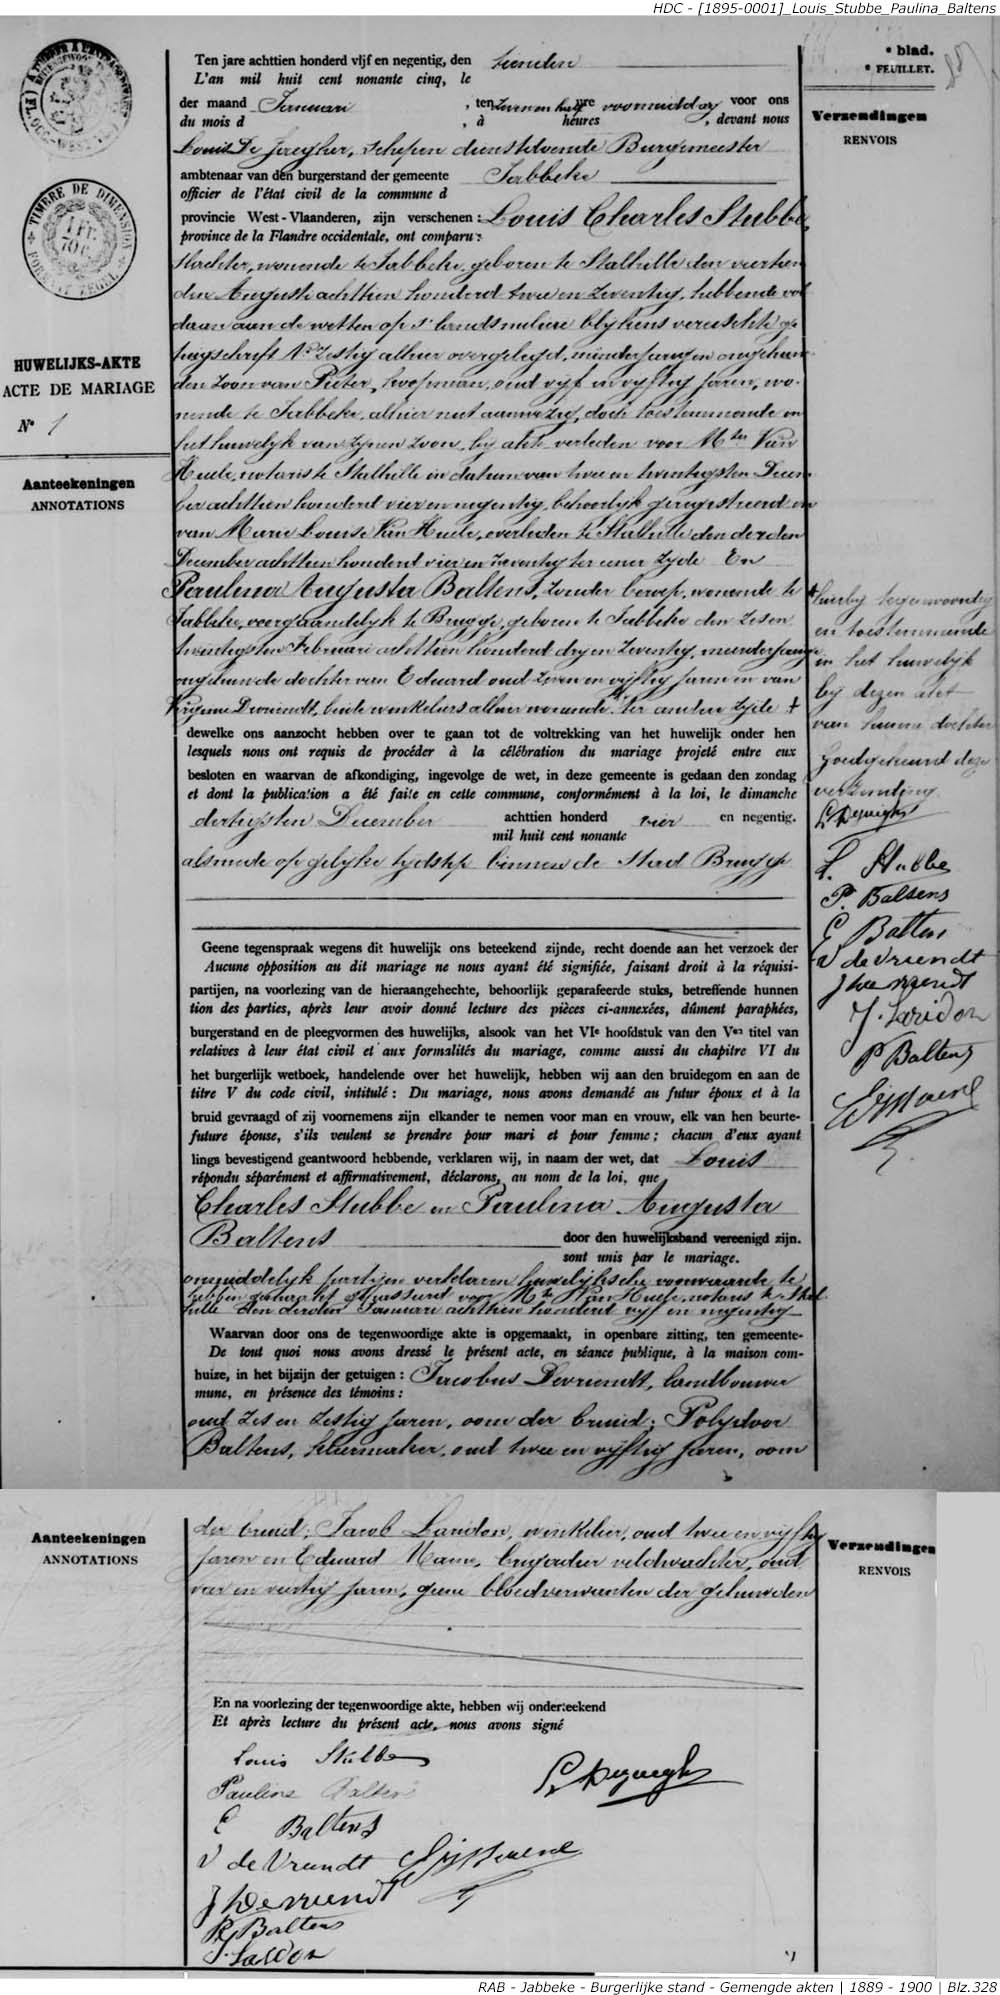 HDC - [1895-0001]_Louis_Stubbe_Paulina_Baltens
TIMBRE DE DIMENSION
FORMAAT ZEGEL
HUWELIJKS-AKTE
ACTE DE MARIAGE
N° 1
Aanteekeningen
ANNOTATIONS
Ten jare achttien honderd vijf en negentig, den tienden
L'an mil huit cent nonante cinq, le
der maand Januari, ten zeven en half ure voormiddag voor ons
du mois d , à heures , devant nous
Louis De Jaegher, schepen dienstdoende Burgemeester
ambtenaar van den burgerstand der gemeente Jabbeke
officier de l'état civil de la commune d
provincie West-Vlaanderen, zijn verschenen: Louis Charles Stubbe,
province de la Flandre occidentale, ont comparu:
slachter, wonende te Jabbeke, geboren te Stalhille den veertien
den Augusti achttien honderd twee en zeventig, hebbende vol
daan aan de wetten op s' landsmilicie blijkens vereischte ge
tuigschrift N° zestig alhier overgelegd, minderjarig en ongehuw
den zoon van Pieter, koopman, oud vijf en vijftig jaren, wo-
nende te Jabbeke, alhier niet aanwezig, doch toestemmende in
het huwelijk van zijnen zoon, bij akte verleden voor Mter Van
Heule, notaris te Stalhille in datum van twee en twintigsten Decem
ber achttien honderd vier en negentig, behoorlijk geregistreerd en
van Marie Louise Van Heule, overleden te Stalhille den derden
December achttien honderd vier en zeventig ter eener zijde En
Paulina Augusta Baltens, zonder beroep, wonende te
Jabbeke, voorgaandelijk te Brugge, geboren te Jabbeke den zes en
twintigsten Februari achttien honderd dry en zeventig, meerderjarige
ongehuwde dochter van Eduard oud zeven en vijftig jaren en van
Virginie Devriendt, beide winkeliers alhier wonende ter andere zijde +
dewelke ons aanzocht hebben over te gaan tot de voltrekking van het huwelijk onder hen
lesquels nous ont requis de procéder à la célébration du mariage projeté entre eux
besloten en waarvan de afkondiging, ingevolge de wet, in deze gemeente is gedaan den zondag
et dont la publication a été faite en cette commune, conformément à la loi, le dimanche
dertigsten December achttien honderd vier en negentig.
mil huit cent nonante
alsmede op gelijke tijdstip binnen de Stad Brugge
Geene tegenspraak wegens dit huwelijk ons beteekend zijnde, recht doende aan het verzoek der
Aucune opposition au dit mariage ne nous ayant été signifiée, faisant droit à la réquisi-
partijen, na voorlezing van de hieraangehechte, behoorlijk geparafeerde stuks, betreffende hunnen
tion des parties, après leur avoir donné lecture des pièces ci-annexées, dûment paraphées,
burgerstand en de pleegvormen des huwelijks, alsook van het VIe hoofdstuk van den Ven titel van
relatives à leur état civil et aux formalités du mariage, comme aussi du chapitre VI du
het burgerlijk wetboek, handelende over het huwelijk, hebben wij aan den bruidegom en aan de
titre V du code civil, intitulé: Du mariage, nous avons demandé au futur époux et à la
bruid gevraagd of zij voornemens zijn elkander te nemen voor man en vrouw, elk van hen beurte-
future épouse, s'ils veulent se prendre pour mari et pour femme; chacun d'eux ayant
lings bevestigend geantwoord hebbende, verklaren wij, in naam der wet, dat Louis
répondu séparément et affirmativement, déclarons, au nom de la loi, que
Charles Stubbe en Paulina Augusta
Baltens door den huwelijksband vereenigd zijn.
sont unis par le mariage.
onmiddelijk partijen verklaren huwelijksche voorwaarde te
hebben gemaakt gepasseerd voor Mte Van Heule, notaris te Stal
hille den derden Januari achttien honderd vijf en negentig
Waarvan door ons de tegenwoordige akte is opgemaakt, in openbare zitting, ten gemeente-
De tout quoi nous avons dressé le présent acte, en séance publique, à la maison com-
huize, in het bijzijn der getuigen: Jacobus Devriendt, landbouwer
mune, en présence des témoins:
oud zes en zestig jaren, oom der bruid; Polydoor
Baltens, kleermaker, oud twee en vijftig jaren, oom
blad.
FEUILLET.
Verzendingen
RENVOIS
+ hierbij tegenwoordig
en toestemmende
in het huwelijk
bij dezen akt
van hunne dochter
Goedgekeurd deze
verzending
L Dejaegher
L. Stubbe
P. Baltens
E Baltens
V de Vriendt
J Devriendt
J. Laridon
P Baltens
Aanteekeningen
ANNOTATIONS
der bruid; Jacob Laridon, winkelier, oud twee en vijftig
jaren en Eduard Naeme, brigadier veldwachter, oud
vier en veertig jaren, geene bloedverwanten der gehuwden
Verzendingen
RENVOIS
En na voorlezing der tegenwoordige akte, hebben wij onderteekend
Et après lecture du présent acte, nous avons signé
Louis Stubbe
L Dejaegher
Paulina Baltens
E Baltens
V de Vriendt
J Devriendt
P Baltens
J. Laridon
RAB - Jabbeke - Burgerlijke stand - Gemengde akten | 1889 - 1900 | Blz.328